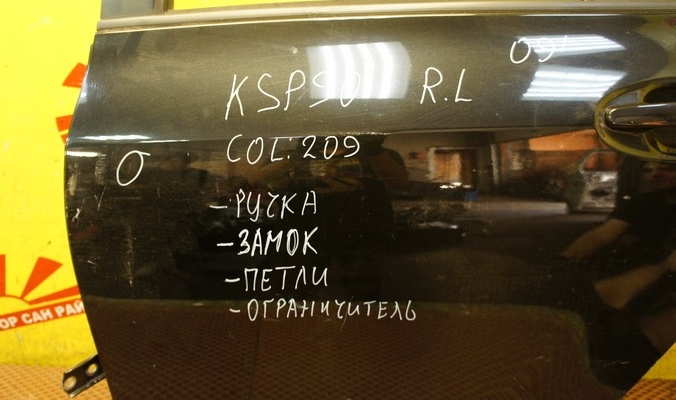 09'
KSP90 R.L
COL.209
O
-РУЧКА
-ЗАМОК
-ПЕТЛИ
-ОГРАНИЧИТЕЛЬ
ОР САН РАЙ